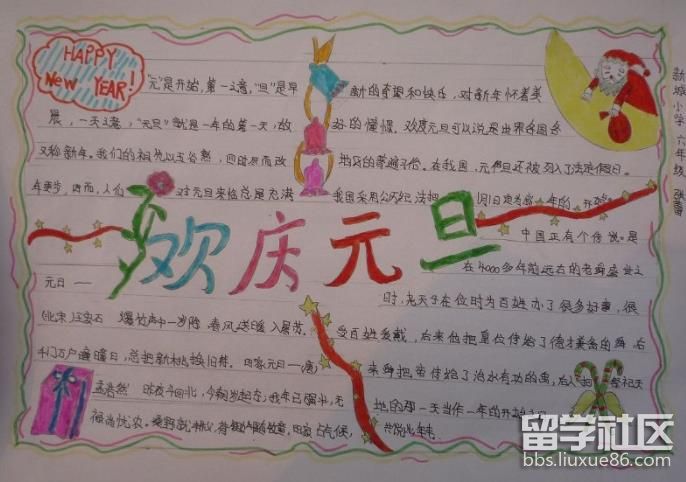 HAPPY
New YEAR!
"元"是开始,第一之意,"旦"是早
晨,一天之意,"元旦"就是一年的第一天,故
又称新年。我们的祖先以五谷熟,
对元旦来临总是充满
新的希望和快乐,对新年怀着美
好的憧憬。欢度元旦可以说是世界各国各
地区的
在我国,元旦还被列入了法定假日。
我国采用公历纪
1月1日定为
一年的开始。
欢庆元旦
中国正有个传说。是
在4000多年前远古的
盛世之
时,尧天子在位时为百姓办了很多好事,很
受百姓爱戴,后来他把皇位传给了德才兼备的舜
来舜把帝传给了治水有功的禹,后人把
祭祀天
地的那一天当作一年的开始
元日——
(北宋)王安石 爆竹声中一岁除,春风送暖入屠苏。
千门万户曈曈日,总把新桃换旧符。田家元日——(唐)
孟浩然 昨夜斗回北,今朝岁起东;我年已强仕,无
禄尚忧农。
田家占气候,
共说此年丰。
新城小学 六年级
留学社区
bbs.liuxue86.com